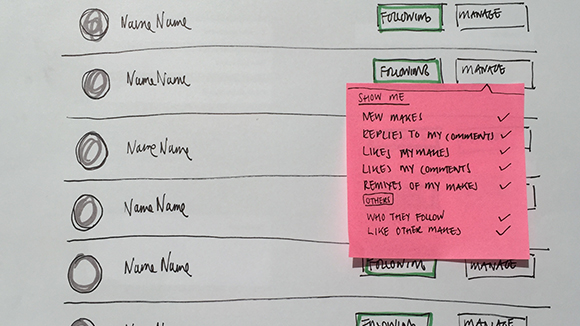 Name Name FOLLOWING MANAGE
Name Name FOLLOWING MANAGE
SHOW ME
NEW MAKES ✓
REPLIES TO MY COMMENTS ✓
Name Name
LIKES MY MAKES ✓
LIKES MY COMMENTS ✓
REMIXES OF MY MAKES ✓
OTHERS
Name Name
WHO THEY FOLLOW ✓
LIKE OTHER MAKES ✓
Name Name FOLLOWING MANAGE
Name Name FOLLOWING MANAGE